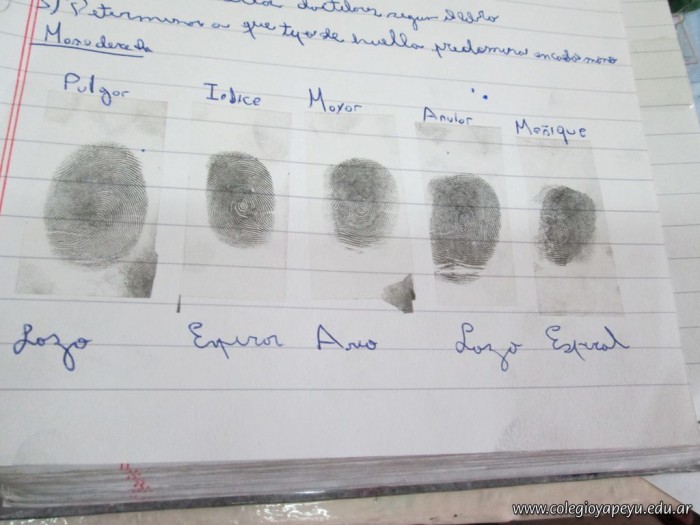 3) Determinar a que tipo de huella predomina en cada mano
Mano derecha
Pulgar Indice Mayor Anular Meñique
Lazo Espiral Arco Lazo Espiral
www.colegioyapeyu.edu.ar